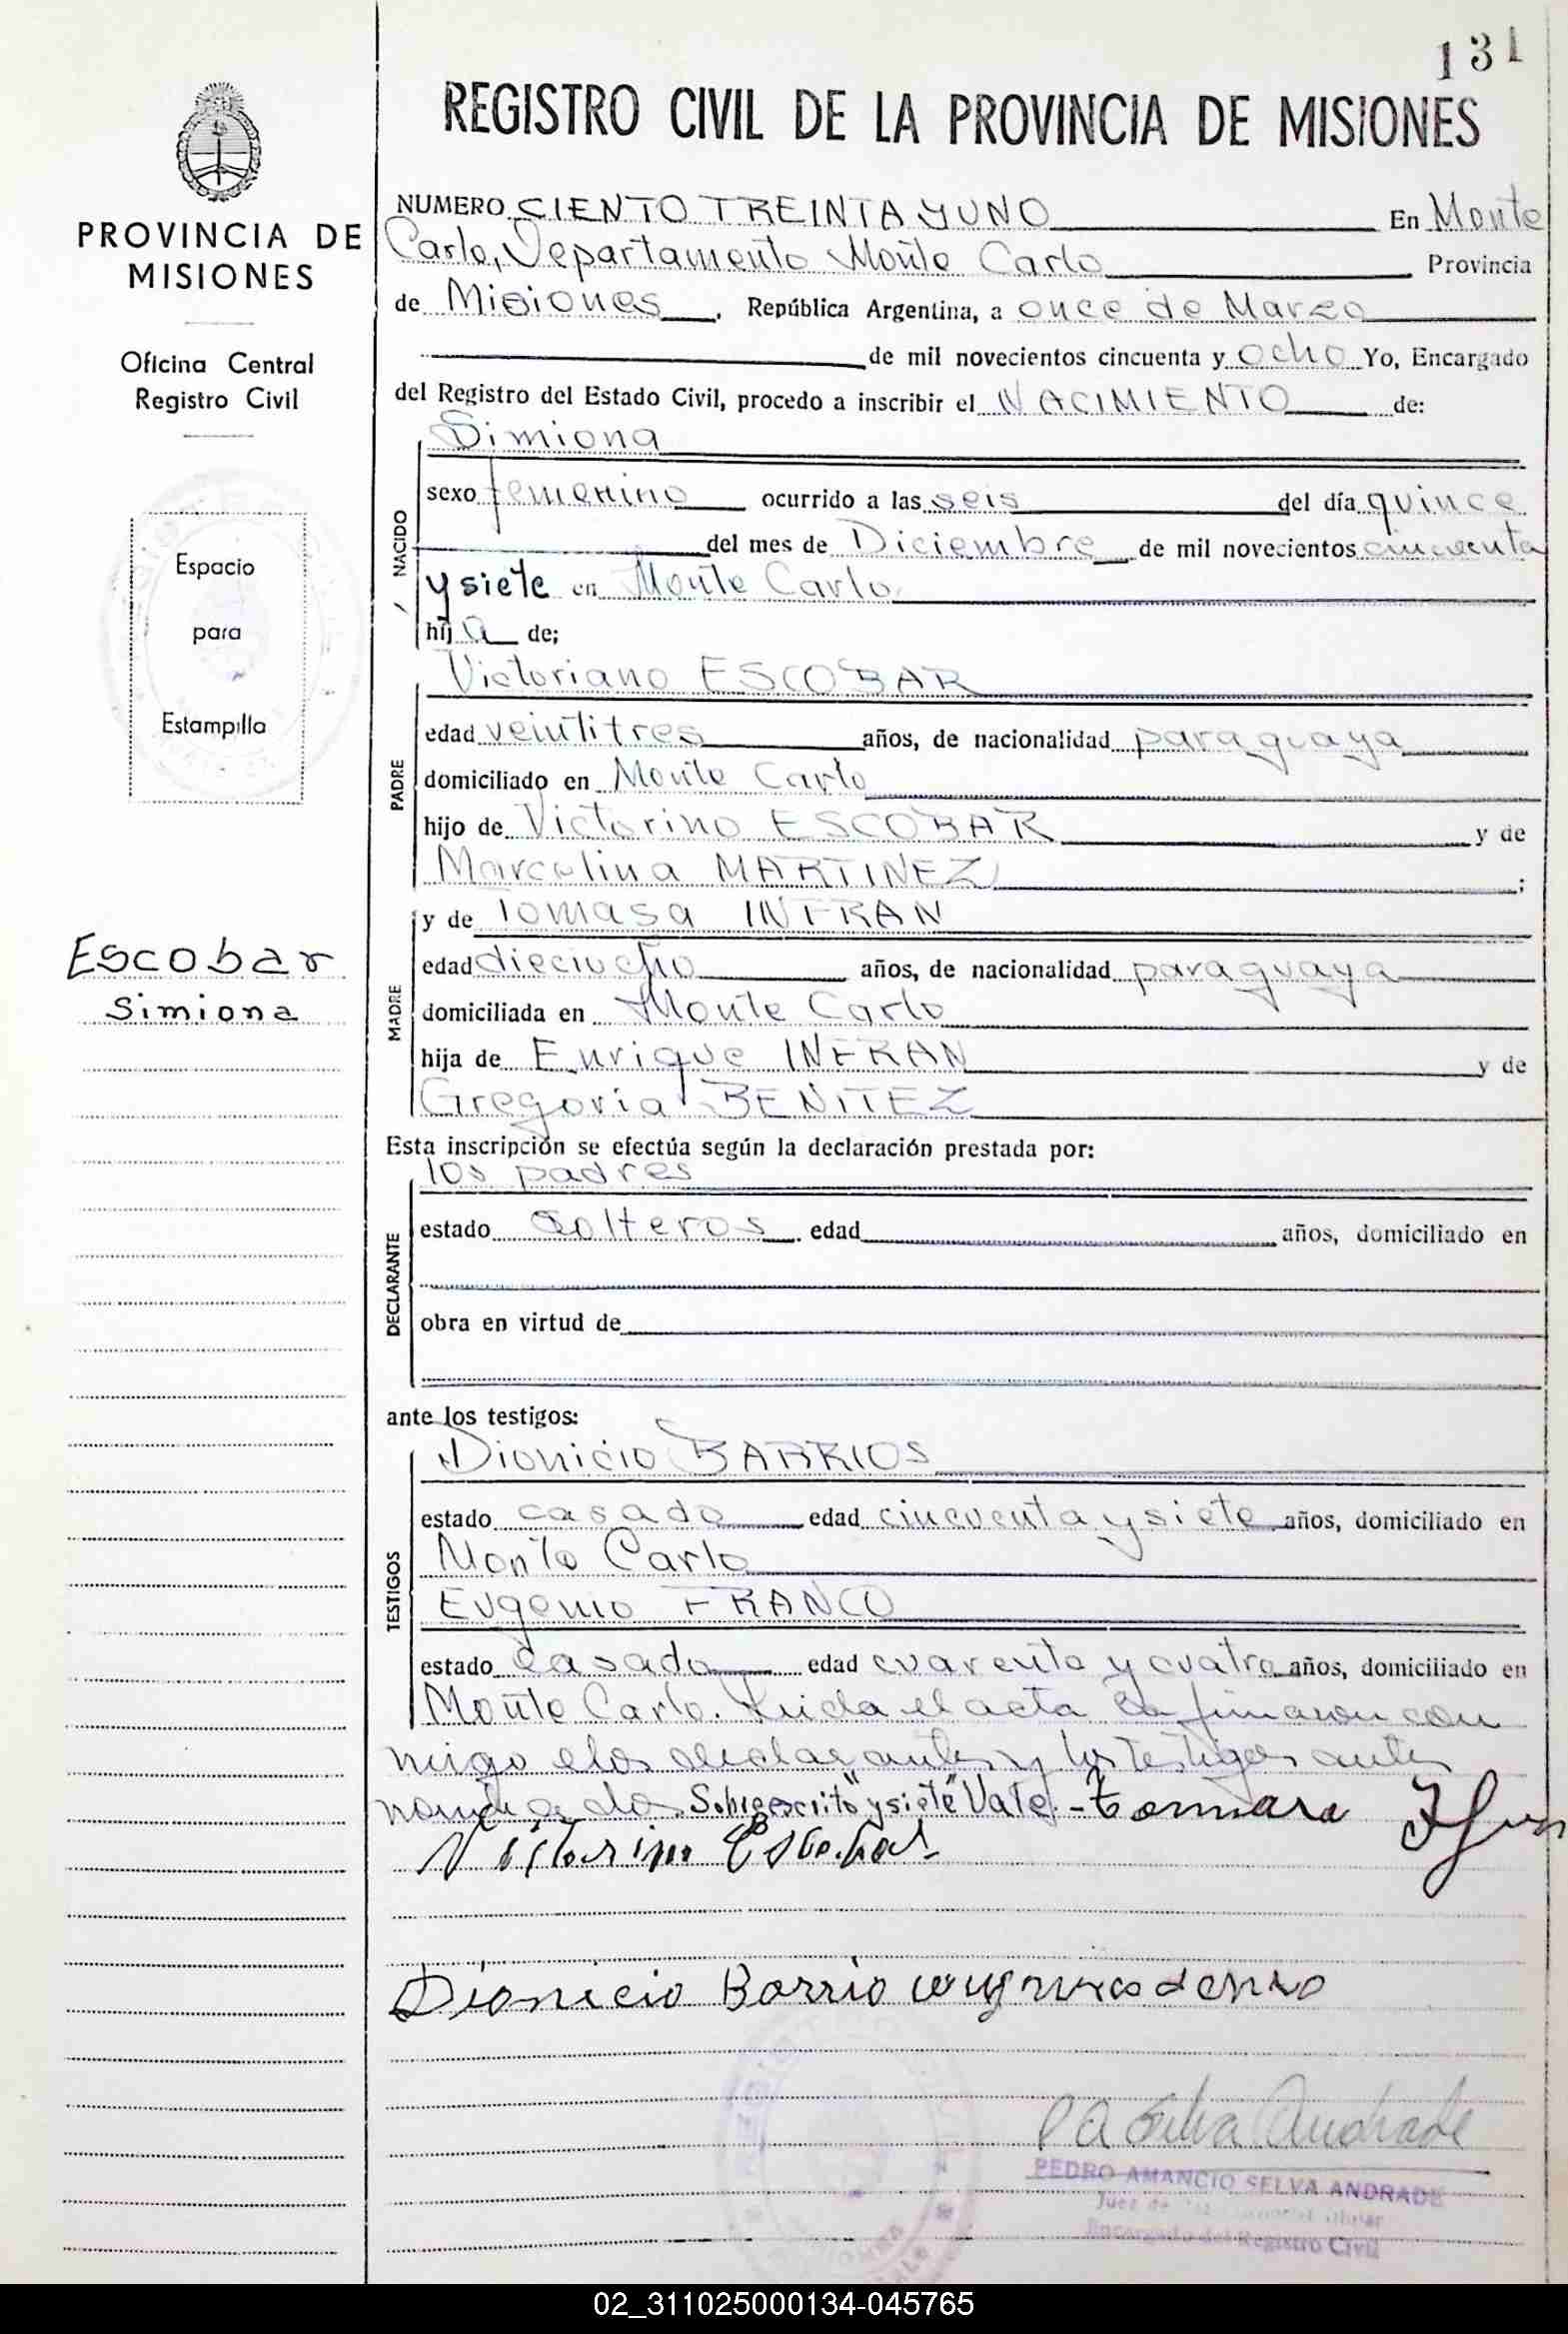 131
REGISTRO CIVIL DE LA PROVINCIA DE MISIONES
PROVINCIA DE
MISIONES
Oficina Central
Registro Civil
Espacio
para
Estampilla
Escobar
Simiona
NUMERO CIENTO TREINTA Y UNO En Monte
Carlo, Departamento Monte Carlo Provincia
de Misiones, República Argentina, a once de Marzo
de mil novecientos cincuenta y ocho Yo, Encargado
del Registro del Estado Civil, procedo a inscribir el NACIMIENTO de:
NACIDO
Simiona
sexo femenino ocurrido a las seis del día quince
del mes de Diciembre de mil novecientos cincuenta
y siete en Monte Carlo
hija de;
PADRE
Victoriano ESCOBAR
edad veintitres años, de nacionalidad paraguaya
domiciliado en Monte Carlo
hijo de Victorino ESCOBAR y de
Marcelina MARTINEZ;
MADRE
y de Tomasa INFRAN
edad dieciocho años, de nacionalidad paraguaya
domiciliada en Monte Carlo
hija de Enrique INFRAN y de
Gregoria BENITEZ
Esta inscripción se efectúa según la declaración prestada por:
DECLARANTE
los padres
estado solteros edad años, domiciliado en
obra en virtud de
ante los testigos:
TESTIGOS
Dionicio BARRIOS
estado casado edad cincuenta y siete años, domiciliado en
Monte Carlo
Eugenio FRANCO
estado casado edad cuarenta y cuatro años, domiciliado en
Monte Carlo. Leida el acta la firmaron con
migo los declarantes y los testigos antes
nombrados Sobreescrito "y siete" Vale.- Tommasa
Victorino Escobar
Dionicio Barrio
P A Selva Andrade
PEDRO AMANCIO SELVA ANDRADE
Juez de
Encargado del Registro Civil
02_311025000134-045765